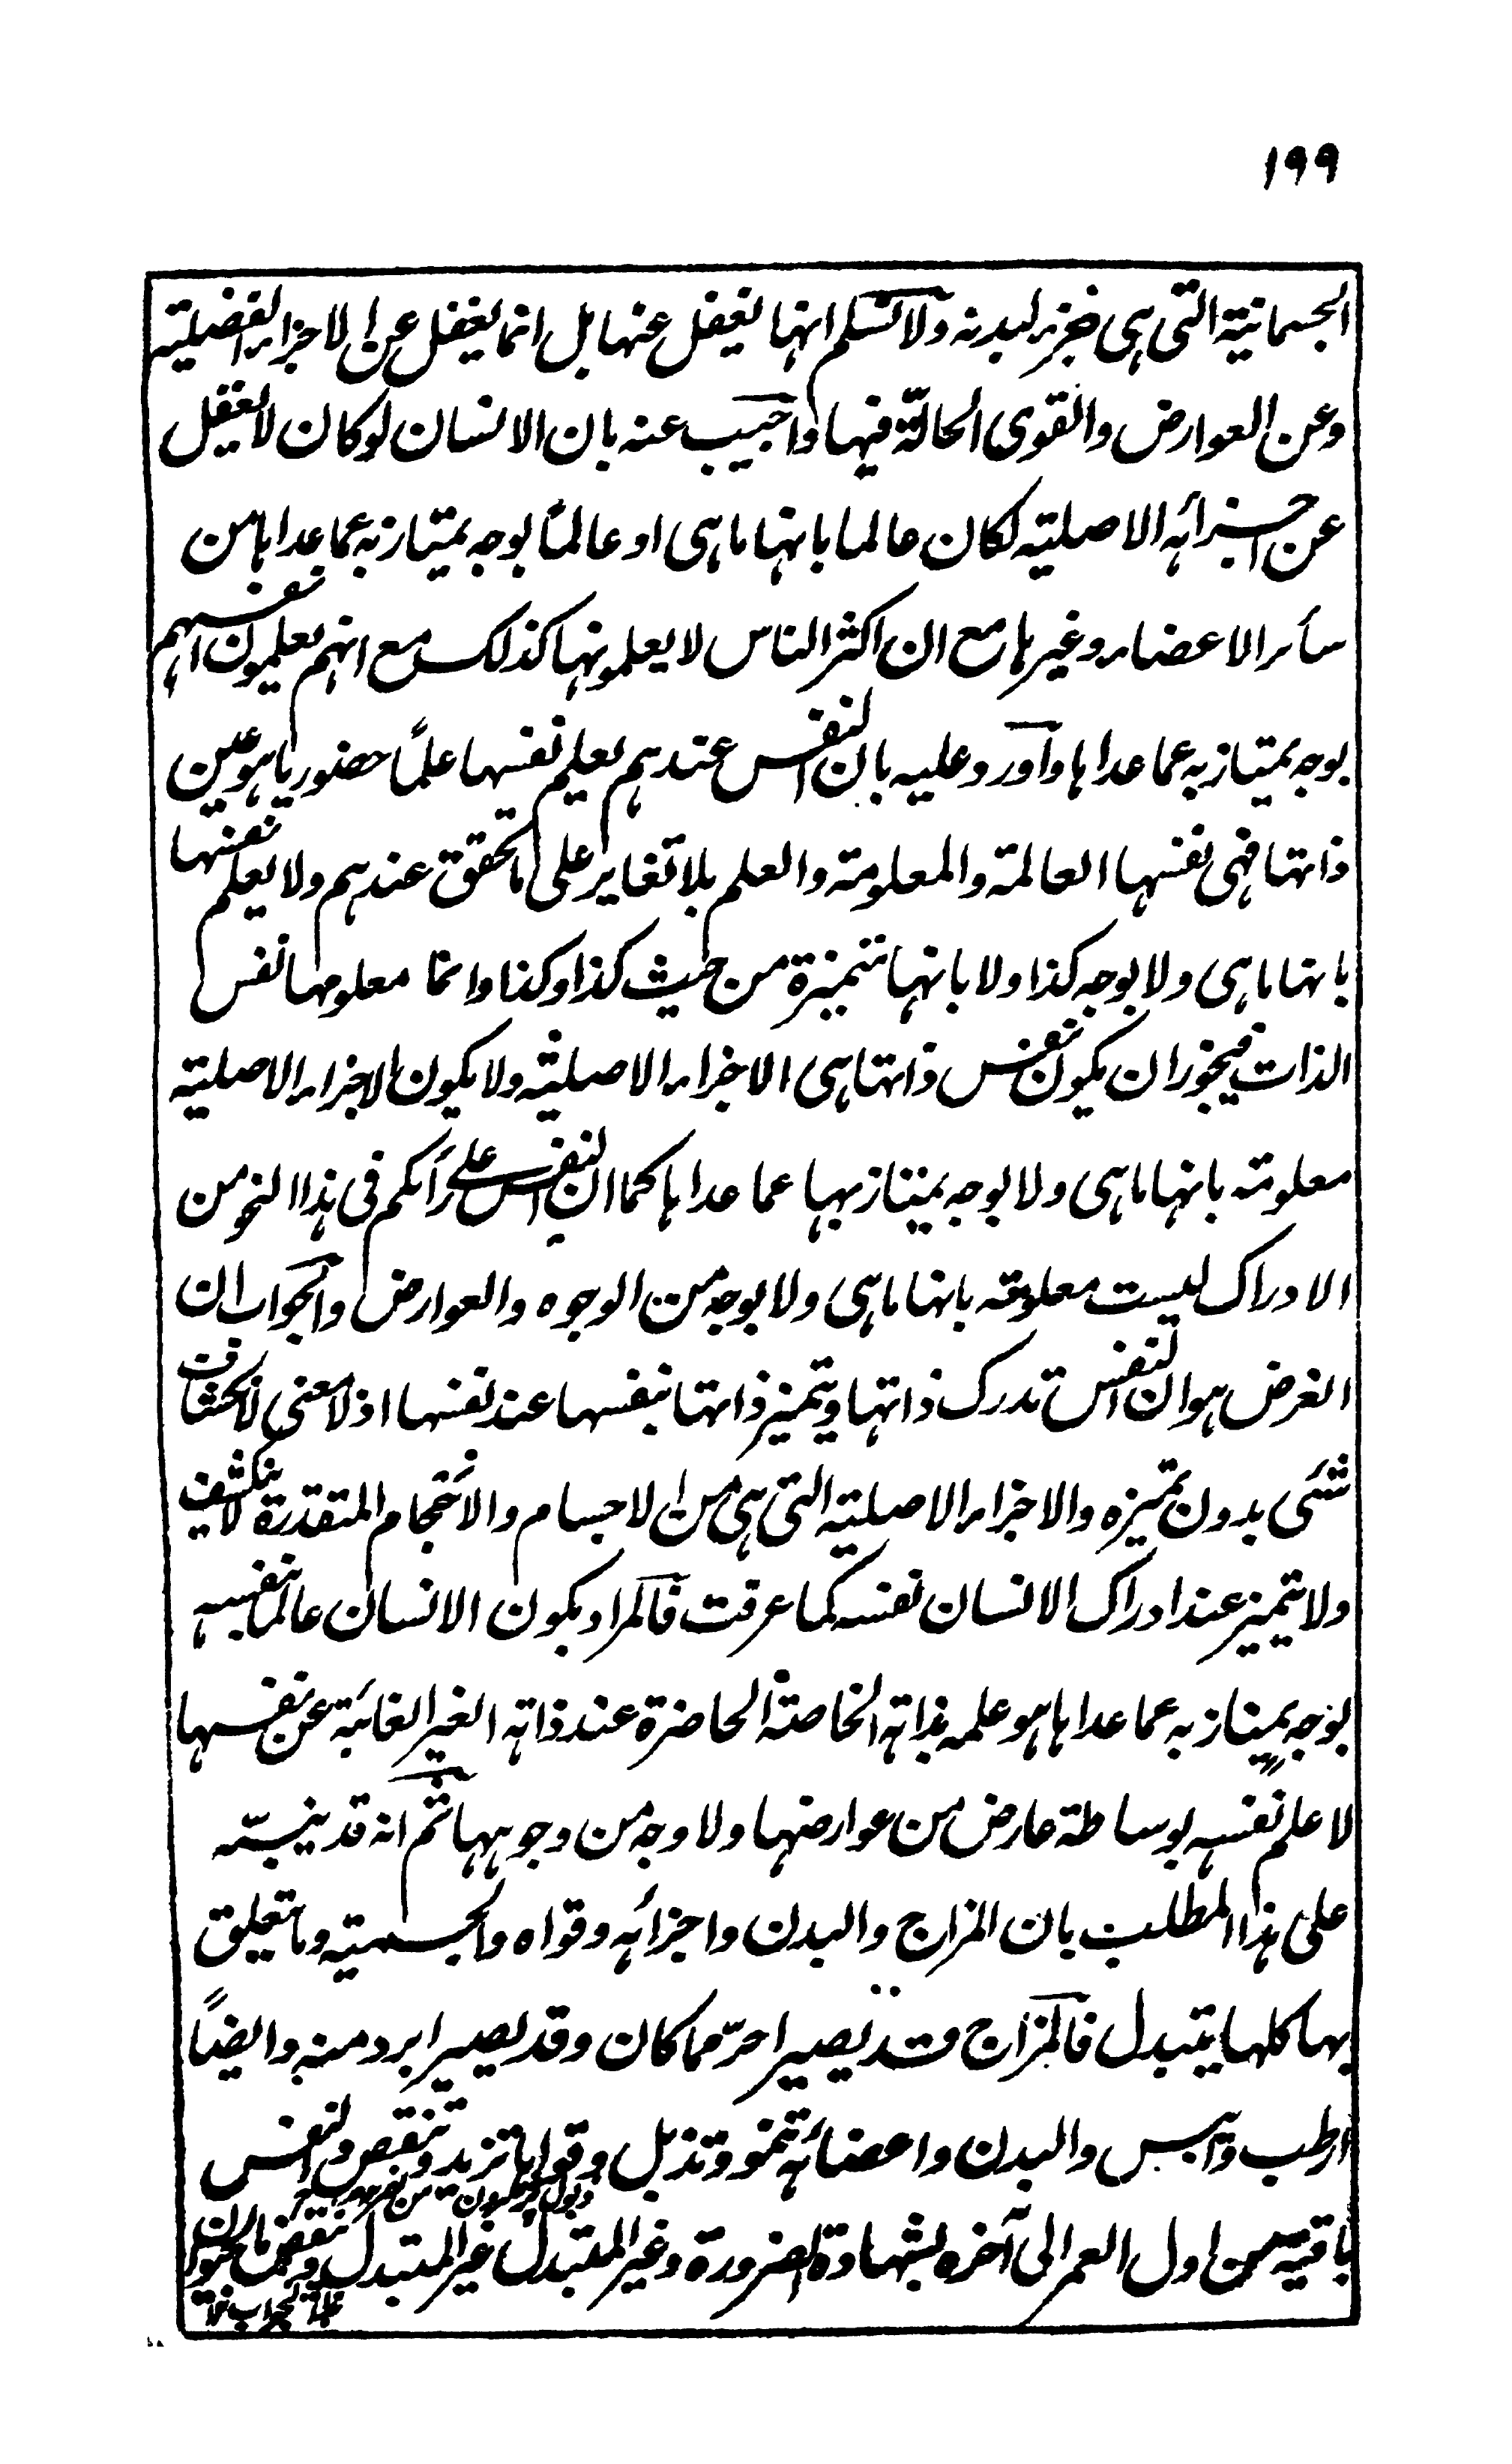 ١٩٩
الجسمانية التى هى جزء لبدنه ولا نسلم انها تغفل عنها بل انما يغفل عن الاجزاء الفضلية
وعن العوارض والقوى الحالة فيها واجيب عنه بان الانسان لو كان لا يغفل
عن اجزائه الاصلية لكان عالما بانها ما هى او عالمًا بوجه يمتاز به عما عداها من
سائر الاعضاء وغيرها مع ان اكثر الناس لا يعلمونها كذلك مع انهم يعلمون انفسهم
بوجه يمتاز به عما عداها واورد عليه بان النفس عندهم يعلم نفسها علمًا حضوريا هو عين
ذاتها فهى نفسها العالمة والمعلومة والعلم بلا تغاير على ما تحقق عندهم ولا يعلم نفسها
بانها ما هى ولا بوجه كذا ولا بانها متميزة من حيث كذا وكذا وانما معلومها نفس
الذات فيجوز ان يكون نفس ذاتها هى الاجزاء الاصلية ولا يكون الاجزاء الاصلية
معلومة بانها ما هى ولا بوجه يمتاز بها عما عداها كما ان النفس على رأيكم فى هذا النحو من
الادراك ليست معلومة بانها ما هى ولا بوجه من الوجوه والعوارض والجواب ان
الغرض هو ان النفس تدرك ذاتها ويتميز ذاتها بنفسها عند نفسها اذ لا معنى لانكشاف
شئى بدون تميزه والاجزاء الاصلية التى هى من الاجسام والاحجام المتقدرة لا ينكشف
ولا يتميز عند ادراك الانسان نفسه كما عرفت فالمراد بكون الانسان عالما بنفسه
بوجه يمتاز به عما عداها هو علمه بذاته الخاصة الحاضرة عند ذاته الغير الغائبة عن نفسها
لا علم نفسه بوساطة عارض من عوارضها ولا وجه من وجوهها ثم انه قد ينبّه
على هذا المطلب بان المزاج والبدن واجزائه وقواه والجسمية وما تعلق
بها كلها يتبدل فالمزاج قد يصير احرّ مما كان وقد يصير ابرد منه وايضًا
ارطب وايبس والبدن واعضائه تنمو وتذبل وقواها تزيد وتنقص والنفس
باقية من اول العمر الى آخره بشهادة الضرورة وغير المتبدل غير المتبدل